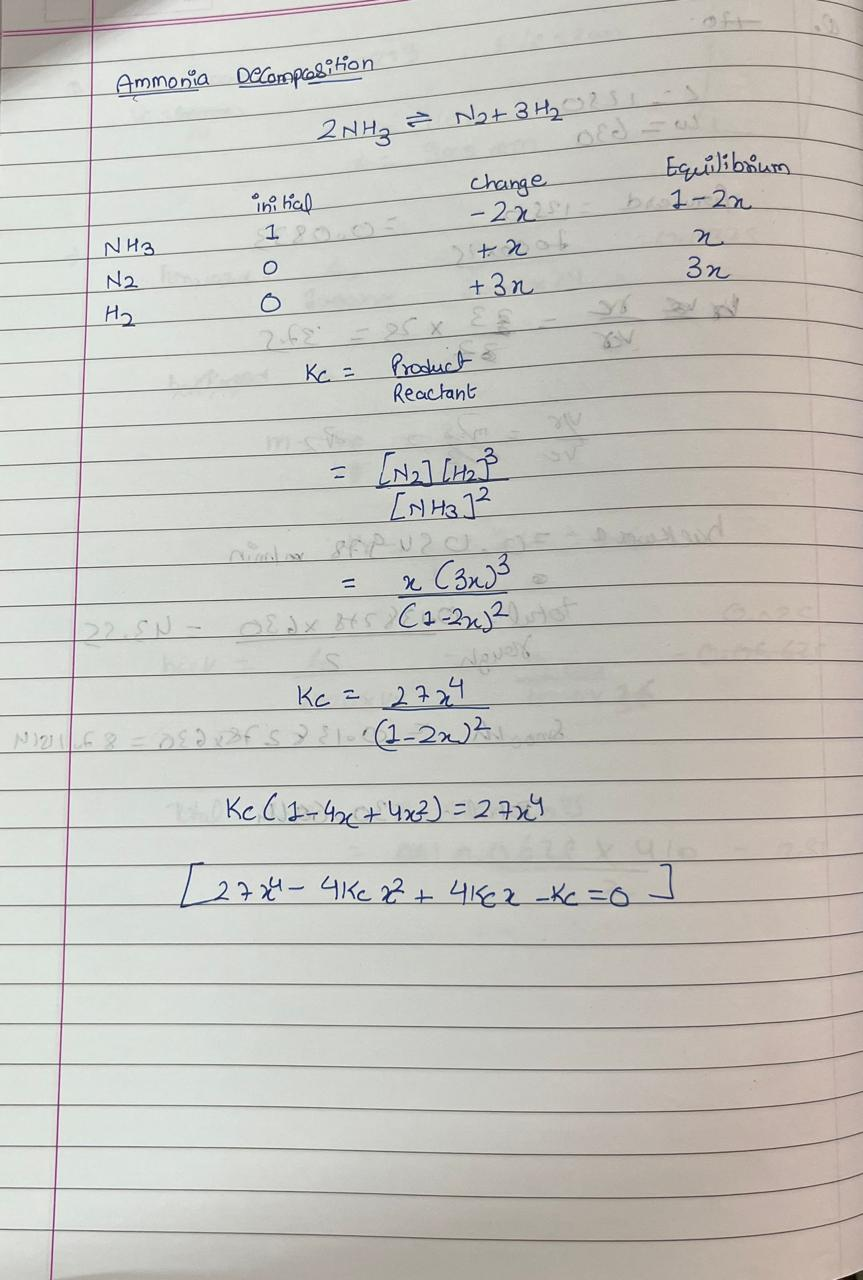 Ammonia Decomposition
2NH3 ⇌ N2 + 3H2
initial change Equilibrium
NH3 1 -2x 1-2x
N2 0 +x x
H2 0 +3x 3x
Kc = Product
Reactant
= [N2] [H2]^3
[NH3]^2
= x (3x)^3
(1-2x)^2
Kc = 27x^4
(1-2x)^2
Kc (1-4x+4x^2) = 27x^4
[27x^4 - 4Kc x^2 + 4Kc x - Kc = 0]